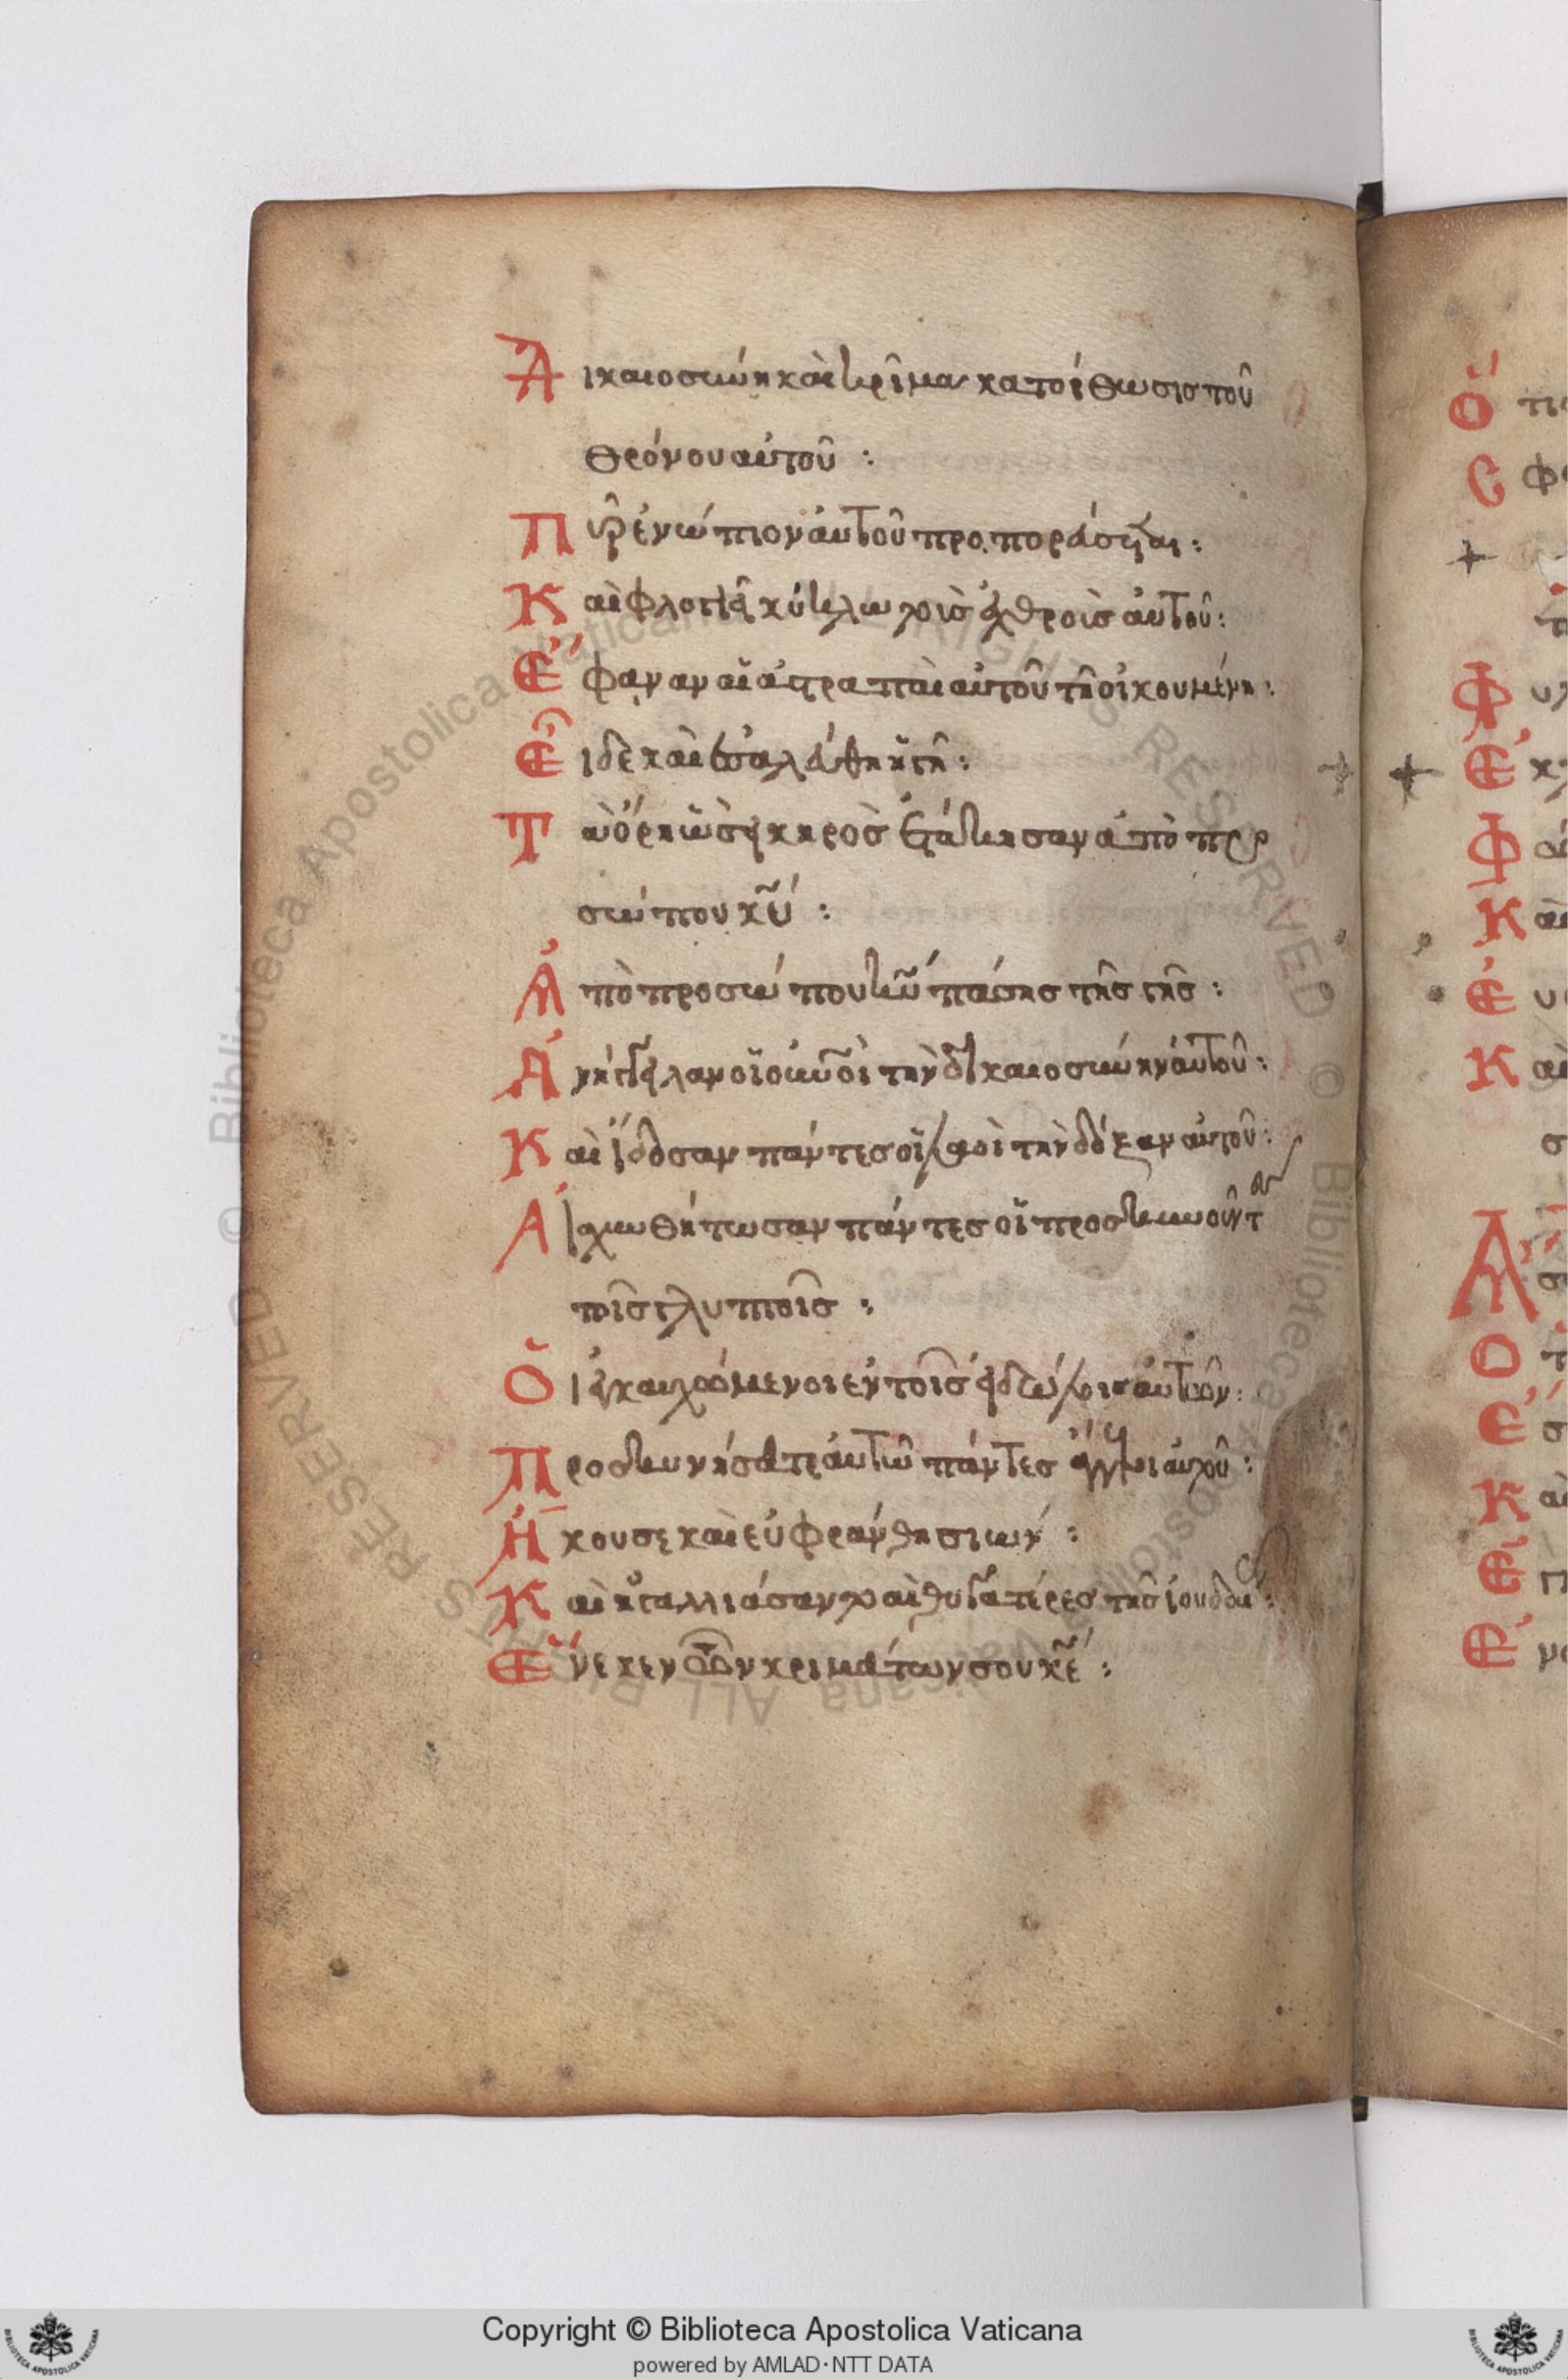 Δικαιοσύνη καὶ κρῖμα κατόρθωσις τοῦ
θρόνου αὐτοῦ :
Πῦρ ἐνώπιον αὐτοῦ προπορεύσεται :
Καὶ φλογιεῖ κύκλω τοὺς ἐχθροὺς αὐτοῦ :
Ἔφαναν αἱ ἀστραπαὶ αὐτοῦ τῆ οἰκουμένη :
Εἶδε καὶ ἐσαλεύθη ἡ γῆ :
Τὰ ὄρη ὡσεὶ κηρὸς ἐτάκησαν ἀπὸ προ
σώπου κῦ :
Ἀπὸ προσώπου κῦ πάσης τῆς γῆς :
Ἀνήγγειλαν οἱ οὐνοὶ τὴν δικαιοσύνην αὐτοῦ :
Καὶ ἴδοσαν πάντες οἱ λαοὶ τὴν δόξαν αὐτοῦ :
Αἰσχυνθήτωσαν πάντες οἱ προσκυνοῦντες
τοῖς γλυπτοῖς :
Οἱ ἐγκαυχώμενοι ἐν τοῖς εἰδώλοις αὐτῶν :
Προσκυνήσατε αὐτῶ πάντες ἄγγελοι αὐτοῦ :
Ἤκουσε καὶ εὐφράνθη σιών :
Καὶ ἠγαλλιάσαντο αἱ θυγατέρες τῆς ἰουδαίας :
Ἕνεκεν τῶν κριμάτων σου κε :
Copyright © Biblioteca Apostolica Vaticana
powered by AMLAD･NTT DATA